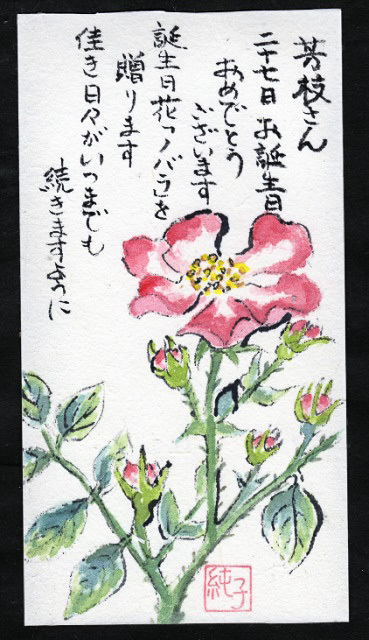 芳枝さん
二十七日お誕生日
おめでとう
ございます
誕生日花「ノバラ」を
贈ります
佳き日々がいつまでも
続きますように
純子